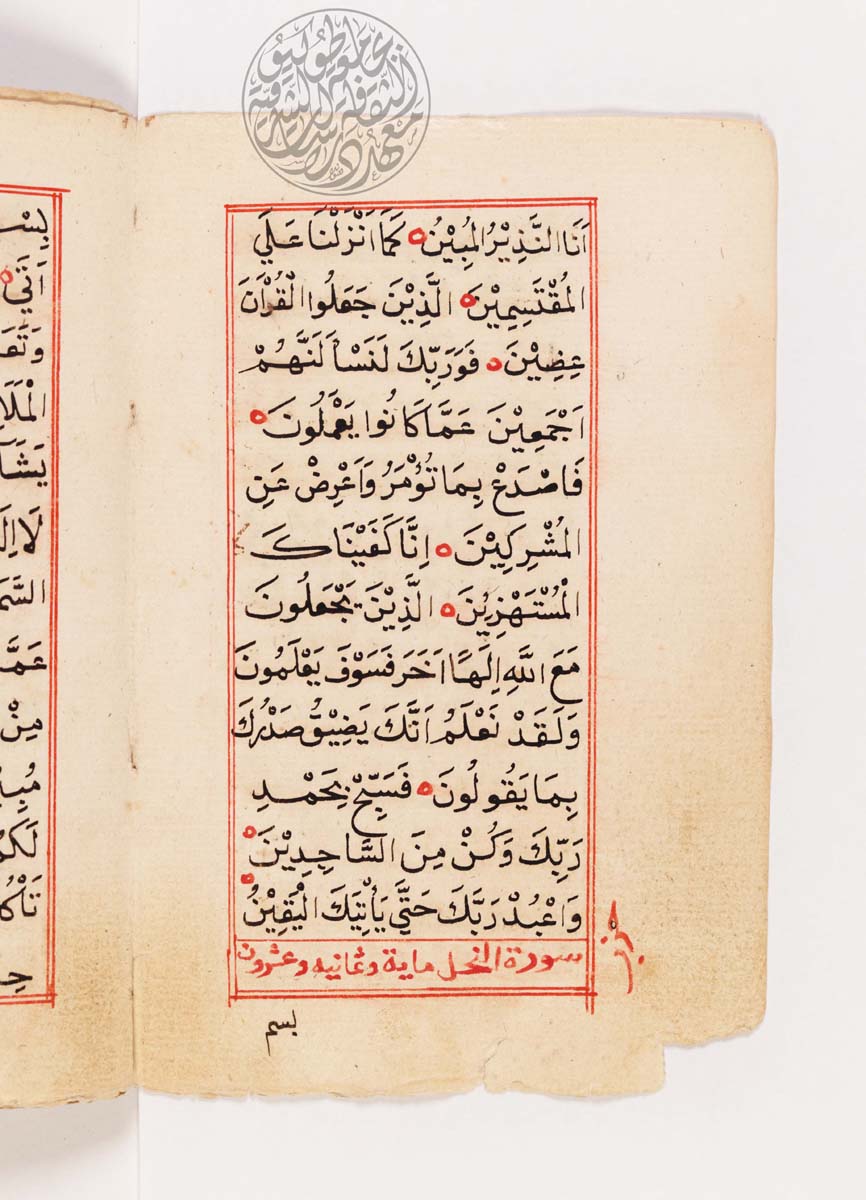 اَنَا النَّذِيْرُ المُبِيْنُ ه كَمَا اَنْزَلْنَا عَلَي
المُقْتَسِمِيْنَ ه الَّذِيْنَ جَعَلُوا الْقُرْاَنَ
عِضِيْنَ ه فَوَرَبِّكَ لَنَسْأَلَنَّهُمْ
اَجْمَعِيْنَ عَمَّا كَانُوا يَعْمَلُونَ ه
فَاصْدَعْ بِمَا تُؤْمَرُ وَاَعْرِضْ عَنِ
المُشْرِكِيْنَ ه اِنَّا كَفَيْنَاكَ
الْمُسْتَهْزِيْنَ ه الَّذِيْنَ يَجْعَلُونَ
مَعَ اللَّهِ اِلَهًا اَخَرَ فَسَوْفَ يَعْلَمُونَ
وَلَقَدْ نَعْلَمُ اَنَّكَ يَضِيْقُ صَدْرُكَ
بِمَا يَقُولُونَ ه فَسَبِّحْ بِحَمْدِ
رَبِّكَ وَكُنْ مِنَ السَّاجِدِيْنَ ه
وَاعْبُدْ رَبَّكَ حَتَّي يَأْتِيَكَ الْيَقِيْنُ ه
سورة النحل ماية وثمانيه وعشرون
بسم